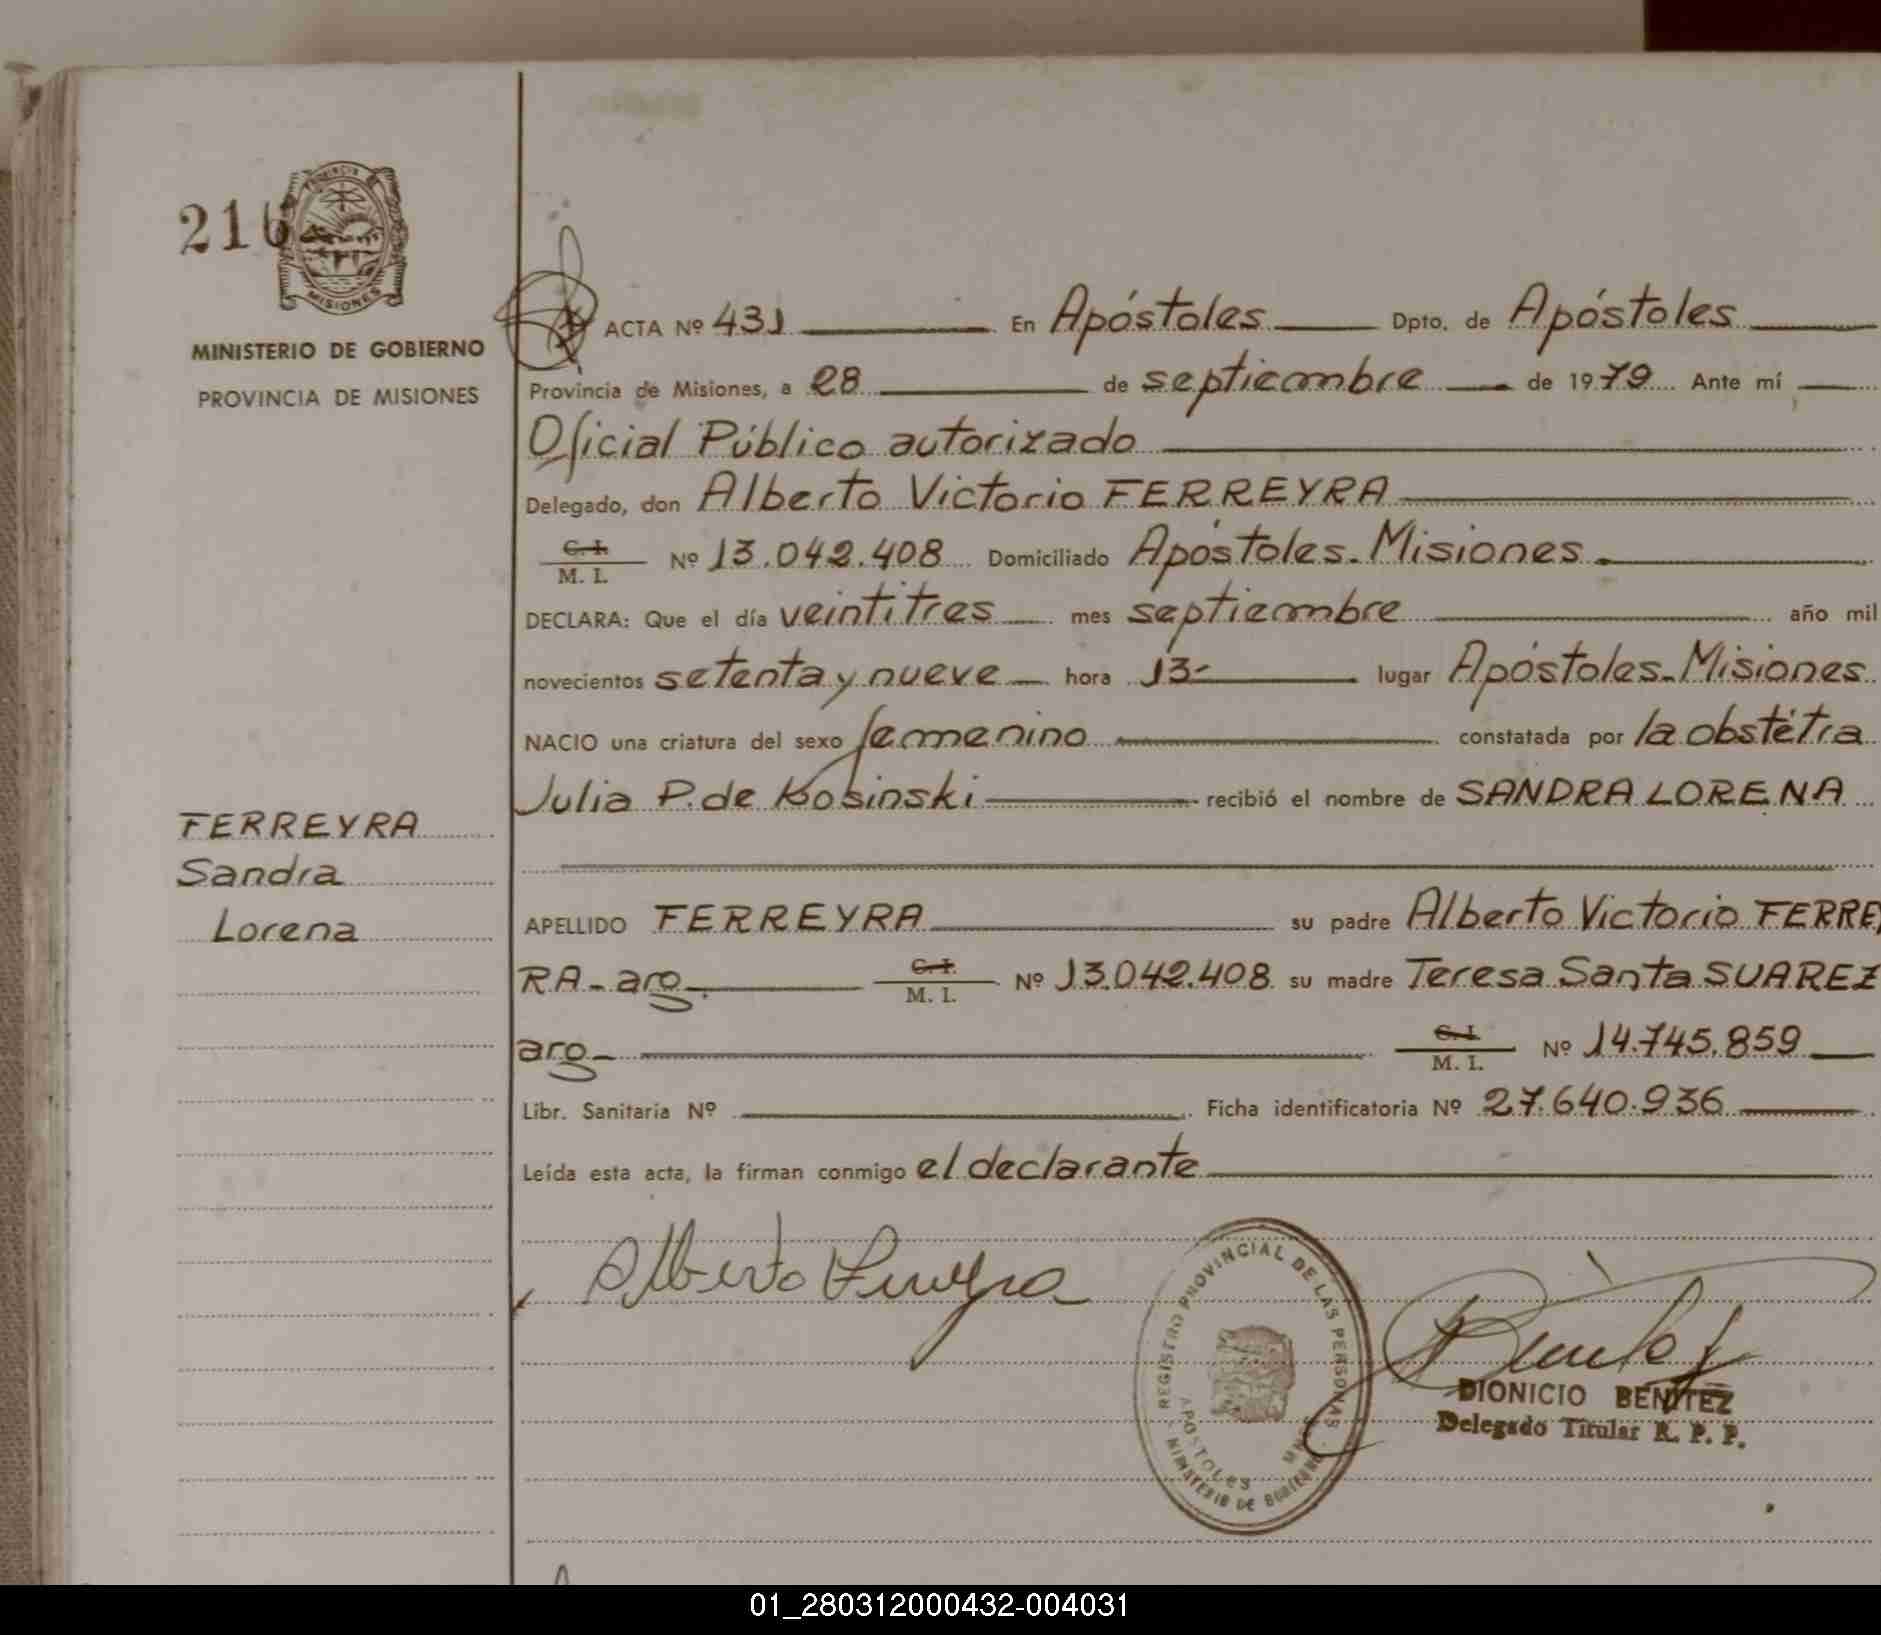 216
PROVINCIA DE
MISIONES
MINISTERIO DE GOBIERNO
PROVINCIA DE MISIONES
FERREYRA
Sandra
Lorena
ACTA Nº 431 En Apóstoles Dpto. de Apóstoles
Provincia de Misiones, a 28 de septiembre de 1979 Ante mí
Oficial Público autorizado
Delegado, don Alberto Victorio FERREYRA
C. I.
M. I. Nº 13.042.408 Domiciliado Apóstoles-Misiones
DECLARA: Que el día veintitres mes septiembre año mil
novecientos setenta y nueve hora 13- lugar Apóstoles-Misiones
NACIO una criatura del sexo femenino constatada por la obstétra
Julia P. de Kosinski recibió el nombre de SANDRA LORENA
APELLIDO FERREYRA su padre Alberto Victorio FERREY
RA-arg. C. I.
M. I. Nº 13.042.408 su madre Teresa Santa SUAREZ
arg- C. I.
M. I. Nº 14.745.859
Libr. Sanitaria Nº Ficha identificatoria Nº 27.640.936
Leída esta acta, la firman conmigo el declarante
Alberto Ferreyra
REGISTRO PROVINCIAL DE LAS PERSONAS
APOSTOLES MNES
MINISTERIO DE GOBIERNO
Benitez
DIONICIO BENITEZ
Delegado Titular R. P. P.
01_280312000432-004031